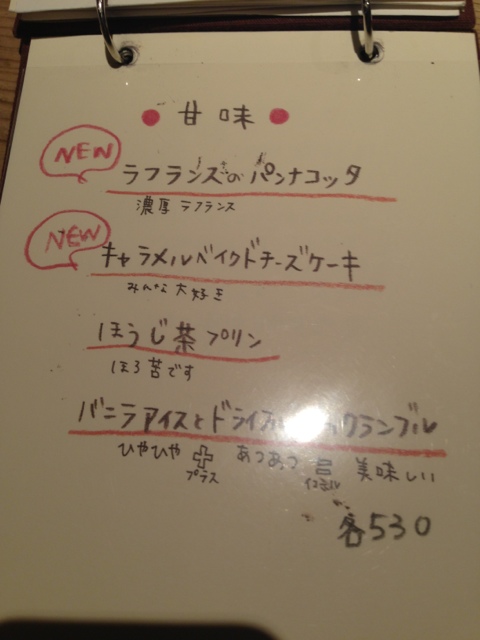 ● 甘味 ●
NEW
ラフランスのパンナコッタ
濃厚 ラフランス
NEW
キャラメルベイクドチーズケーキ
みんな大好き
ほうじ茶プリン
ほろ苦です
バニラアイスとドライフル クランブル
ひやひや + プラス あつあつ = イコール 美味しい
各530